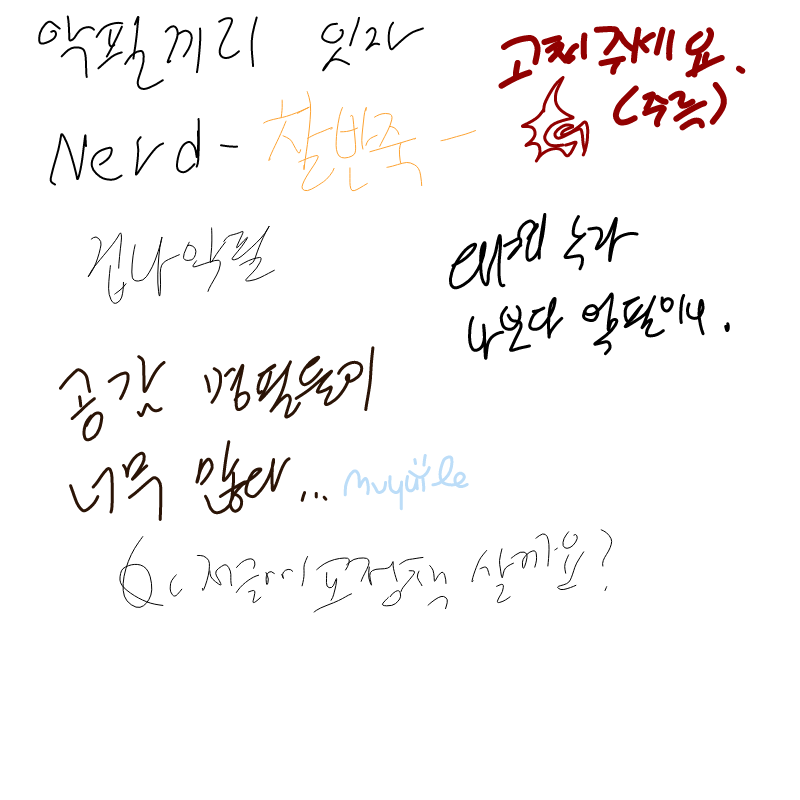 악필끼리 잇자
고쳐주세요.
(주륵)
Nerd - 찰반죽 -
겁나악필
녹라
나보다 악필이냐.
공감 명필들이
너무 많다...
Q. 글씨 교정책 살까요?